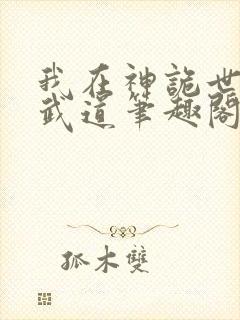 我在神詭世
武道筆趣閣
孤木雙